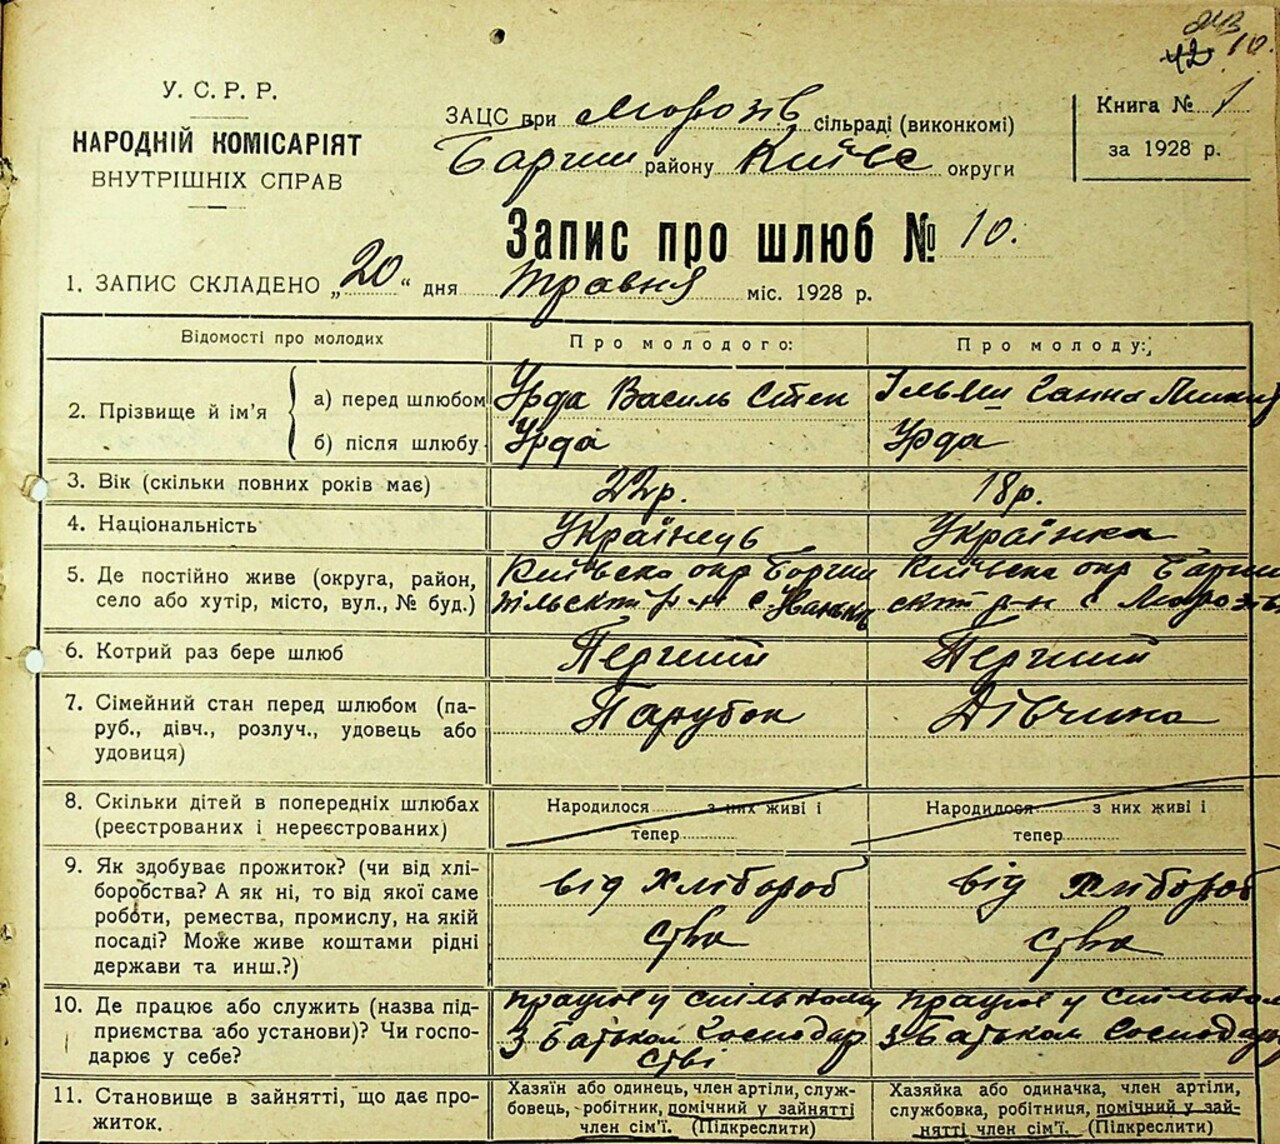 10.
У. С. Р. Р.
НАРОДНІЙ КОМІСАРІЯТ
ВНУТРІШНІХ СПРАВ
ЗАЦС при Морозів сільраді (виконкомі)
району Київс округи
Книга № 1
за 1928 р.
Запис про шлюб № 10.
1. ЗАПИС СКЛАДЕНО „20“ дня травня міс. 1928 р.
Відомості про молодих
Про молодого:
Про молоду:
2. Прізвище й ім'я
а) перед шлюбом
Урда Василь Степ
Ганна
б) після шлюбу
Урда
Урда
3. Вік (скільки повних років має)
22р.
18р.
4. Національність
Українець
Українка
5. Де постійно живе (округа, район,
село або хутір, місто, вул., № буд.)
Київська окр
р-н с.
Київська окр
р-н с Морозів
6. Котрий раз бере шлюб
Перший
Перший
7. Сімейний стан перед шлюбом (па-
руб., дівч., розлуч., удовець або
удовиця)
Парубок
Дівчина
8. Скільки дітей в попередніх шлюбах
(реєстрованих і нереєстрованих)
Народилося з них живі і
тепер
Народилося з них живі і
тепер
9. Як здобуває прожиток? (чи від хлі-
боробства? А як ні, то від якої саме
роботи, ремества, промислу, на якій
посаді? Може живе коштами рідні
держави та инш.?)
від Хлібороб
ства
від хлібороб
ства
10. Де працює або служить (назва під-
приємства або установи)? Чи госпо-
дарює у себе?
працює у спільному
з Батьком Господар
стві
працює у спільном
з Батьком Господар
11. Становище в зайнятті, що дає про-
житок.
Хазяїн або одинець, член артілі, служ-
бовець, робітник, помічний у зайнятті
член сім'ї. (Підкреслити)
Хазяйка або одиначка, член артілі,
службовка, робітниця, помічний у зай-
нятті член сім'ї. (Підкреслити)